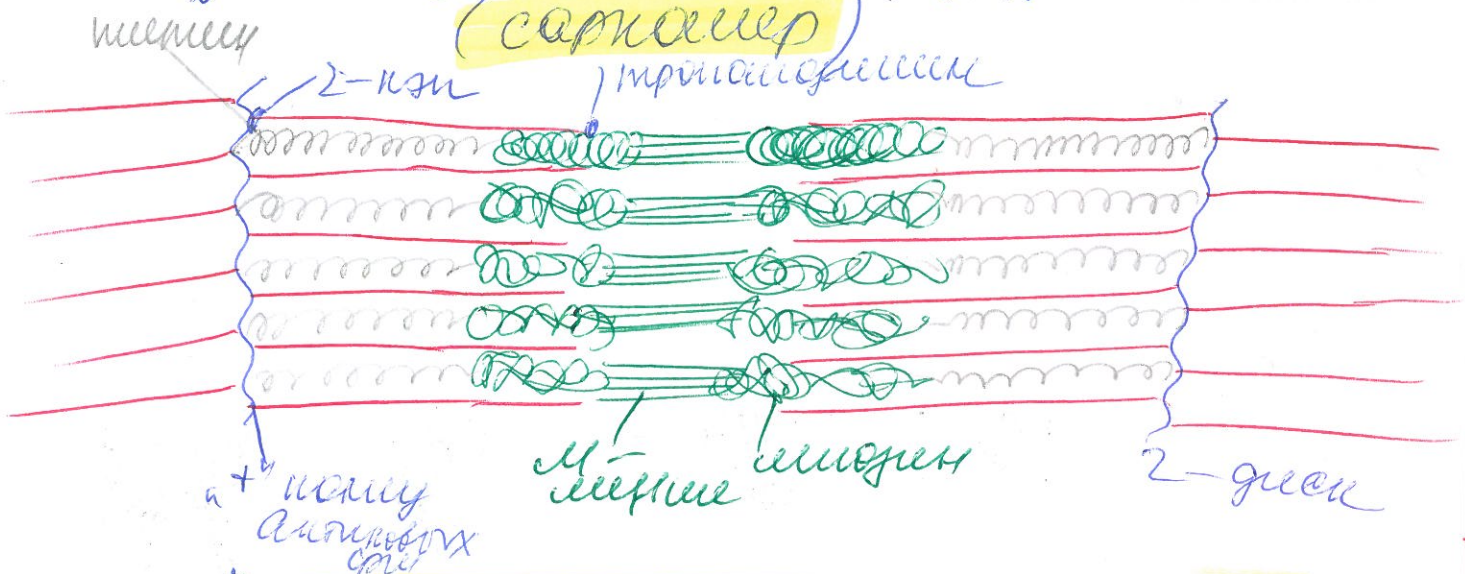 титин
(саркомер)
Z-кэп
тропомодулин
М-
линии
миозин
Z-диск
"+" концы
актиновых